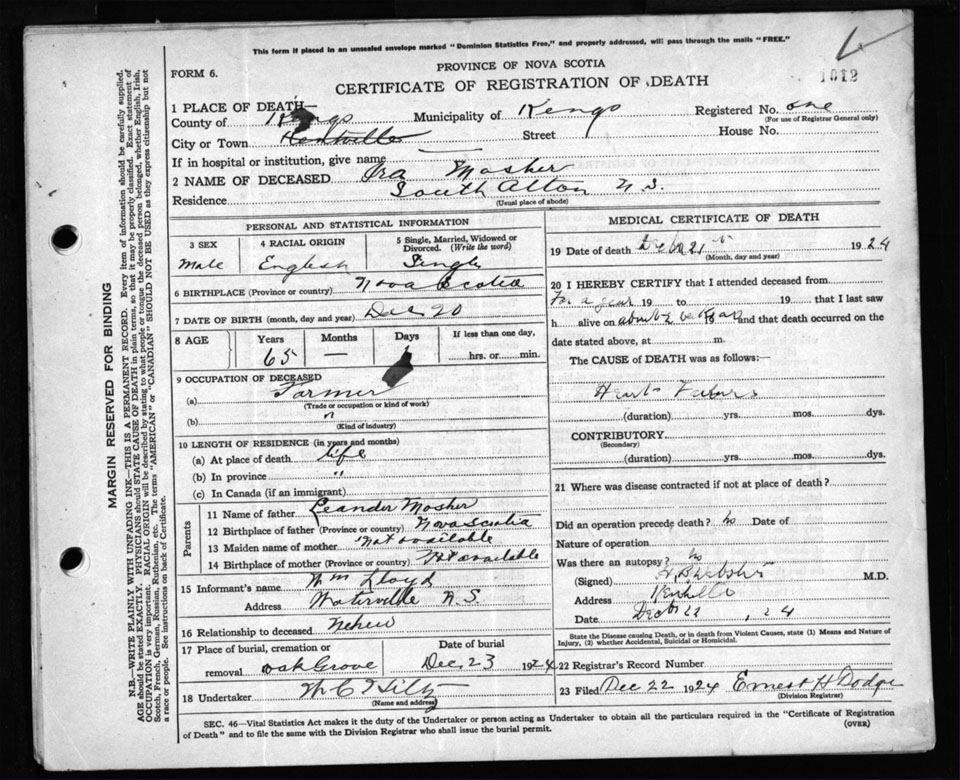 This form if placed in an unsealed envelope marked "Dominion Statistics Free," and properly addressed, will pass through the mails "FREE."
PROVINCE OF NOVA SCOTIA
FORM 6.
CERTIFICATE OF REGISTRATION OF DEATH
1012
1 PLACE OF DEATH—
County of Kings Municipality of Kings Registered No. one
(For use of Registrar General only)
City or Town Kentville Street House No.
If in hospital or institution, give name
2 NAME OF DECEASED Ira Mosher
Residence South Alton N.S.
(Usual place of abode)
PERSONAL AND STATISTICAL INFORMATION
3 SEX 4 RACIAL ORIGIN 5 Single, Married, Widowed or Divorced. (Write the word)
Male English Single
6 BIRTHPLACE (Province or country) Nova Scotia
7 DATE OF BIRTH (month, day and year) Dec 20
8 AGE Years Months Days If less than one day,
65 — hrs. or min.
9 OCCUPATION OF DECEASED
(a) Farmer
(Trade or occupation or kind of work)
(b) "
(Kind of industry)
10 LENGTH OF RESIDENCE (in years and months)
(a) At place of death life
(b) In province "
(c) In Canada (if an immigrant)
Parents
11 Name of father Leander Mosher
12 Birthplace of father (Province or country) Nova Scotia
13 Maiden name of mother Not available
14 Birthplace of mother (Province or country) Not available
15 Informant's name Wm Lloyd
Address Waterville N.S
16 Relationship to deceased Nehew
17 Place of burial, cremation or removal Oak Grove
Date of burial Dec 23 1924
18 Undertaker W C Hiltz
(Name and address)
MEDICAL CERTIFICATE OF DEATH
19 Date of death 21 1924
(Month, day and year)
20 I HEREBY CERTIFY that I attended deceased from
For a year 19 to 19 that I last saw
h alive on 19 and that death occurred on the
date stated above, at m.
The CAUSE of DEATH was as follows:—
Heart Failure
(duration) yrs. mos. dys.
CONTRIBUTORY
(Secondary)
(duration) yrs. mos. dys.
21 Where was disease contracted if not at place of death?
Did an operation precede death? no Date of
Nature of operation
Was there an autopsy? no
(Signed) Webster M.D.
Address Kentville
Date 22, 24
State the Disease causing Death, or in death from Violent Causes, state (1) Means and Nature of
Injury, (2) whether Accidental, Suicidal or Homicidal.
22 Registrar's Record Number
23 Filed Dec 22 1924 Ernest H Dodge
(Division Registrar)
SEC. 46—Vital Statistics Act makes it the duty of the Undertaker or person acting as Undertaker to obtain all the particulars required in the "Certificate of Registration
of Death" and to file the same with the Division Registrar who shall issue the burial permit.
(OVER)
MARGIN RESERVED FOR BINDING
N.B.—WRITE PLAINLY WITH UNFADING INK—THIS IS A PERMANENT RECORD. Every item of information should be carefully supplied.
AGE should be stated EXACTLY. PHYSICIANS should STATE CAUSE OF DEATH in plain terms, so that it may be properly classified. Exact statement of
OCCUPATION is very important. RACIAL ORIGIN will be described by stating to what people or tongue the deceased person belonged, whether English, Irish,
Scotch, French, German, Russian, Ruthenian, etc. The terms "AMERICAN" or "CANADIAN" SHOULD NOT BE USED as they express citizenship but not
a race or people. See instructions on back of Certificate.